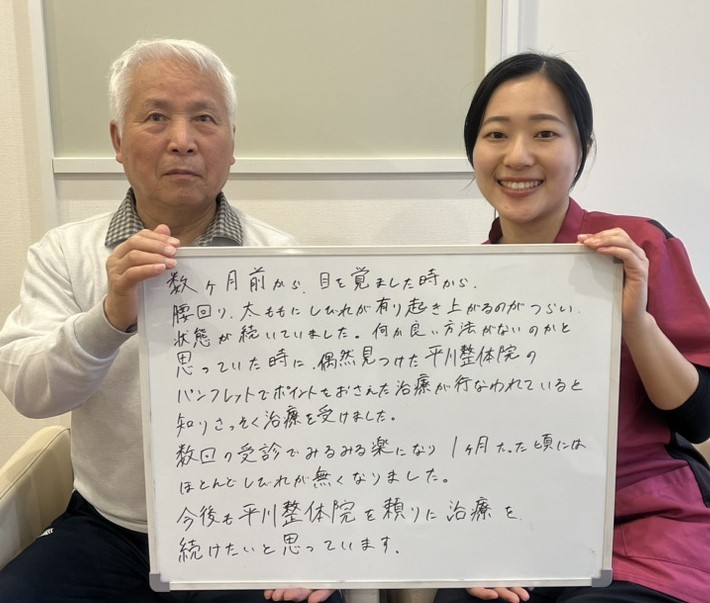 数ヶ月前から、目を覚ました時から、
腰回り、太ももにしびれが有り起き上がるのがつらい、
状態が続いていました。何か良い方法がないのかと
思っていた時に、偶然見つけた平川整体院の
パンフレットでポイントをおさえた治療が行なわれていると
知りさっそく治療を受けました。
数回の受診でみるみる楽になり1ヶ月たった頃には
ほとんどしびれが無くなりました。
今後も平川整体院を頼りに治療を
続けたいと思っています。